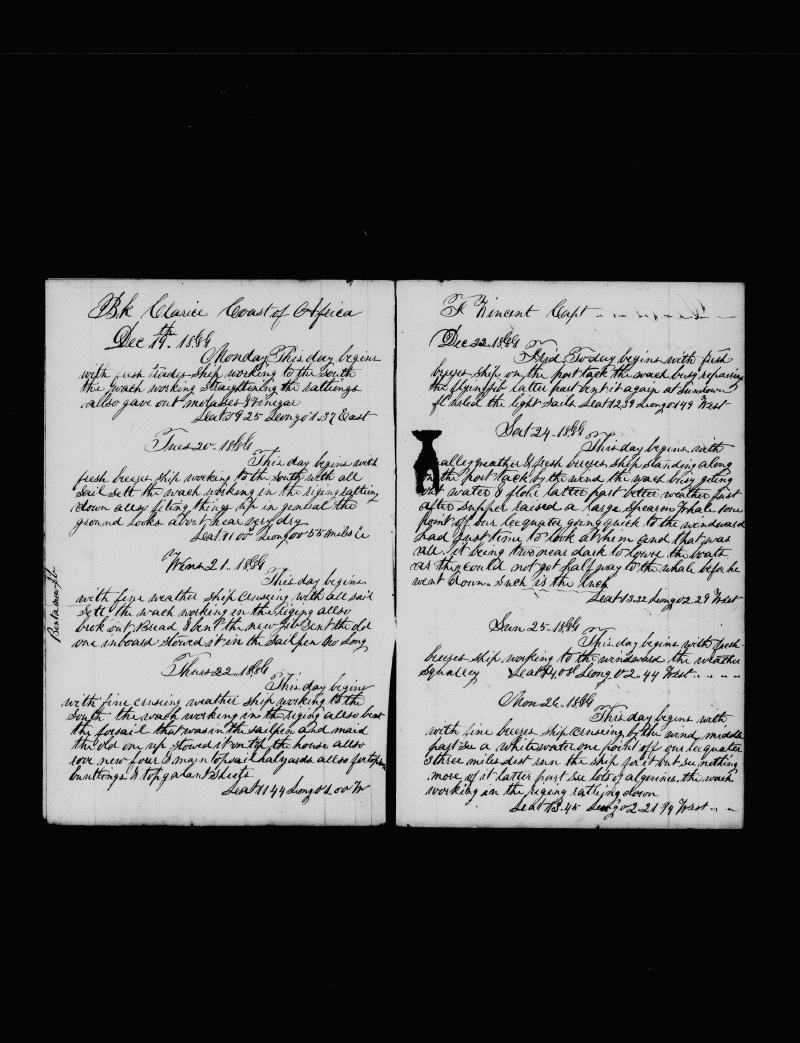 Bk Clarice Coast of Africa
Dec 19th. 1866
Monday This day begins
with fresh trades ship working to the South
the wach working straightening the ratlings
allso gave out molases & vinegar
Leat 9 25 Long 01.37 East
Tues 20. 1866
This day begins with
fresh breezes ship working to the South with all
Sail Sett the wach working in the riging ratling
down allso fiting things up in genral the
ground looks about hear very dry
Leat 11 00 Long 00 55 miles E
Wens 21. 1866
This day begins
with fine weather ship cruseing with all sail
Sett the wach working in the riging allso
brok out Bread & bent the new jib Sent the old
one inboard stowed it in the Sail pen No Long
Thurs 22. 1866
This day begins
with fine cruseing weather ship working to the
South the wach working in the riging allso bent
the forsail that was in the sailpen and maid
the old one up stowed it on top the house allso
rove new four & main topsail halyards allso for topsn
buntlings & topgalant Sheets
Leat 11 44 Long 01.00 W
F Vincent Capt
Dec 22. 1866
Fryd To day begins with fresh
breezes ship on the port tack the wach busy repairing
the flyingjib latter part bent it again at Sundown
furled the light Sails Leat 12 39 Long 01 49 West
Sat 24. 1866
This day begins with
weather & fresh breezes ship standing along
on the port tack by the wind the wach busy giting
out water & flour latter part better weather just
after Supper raised a large Spearm Whale one
point off our lee quater going quick to the windward
had just time to look at him and that was
all. it being two near dark to lower the boats
as they could not got half way to the whale befor he
went down. Such is the luck
Leat 13.32 Long 02.29 West
Sun 25. 1866
This day begins with fresh
breezes ship working to the windward the weather
Squalley Leat 14.08 Long 02.44 West
Mon 26. 1866
This day begins with
with fine breezes ship cruseing by the wind middle
part see a whitewater one point off our lee quater
3 three miles dist run the ship for it but see nothing
more of it latter part see lots of algerines. the wach
working in the riging ratling down
Leat 13.45 Long 02.21 West